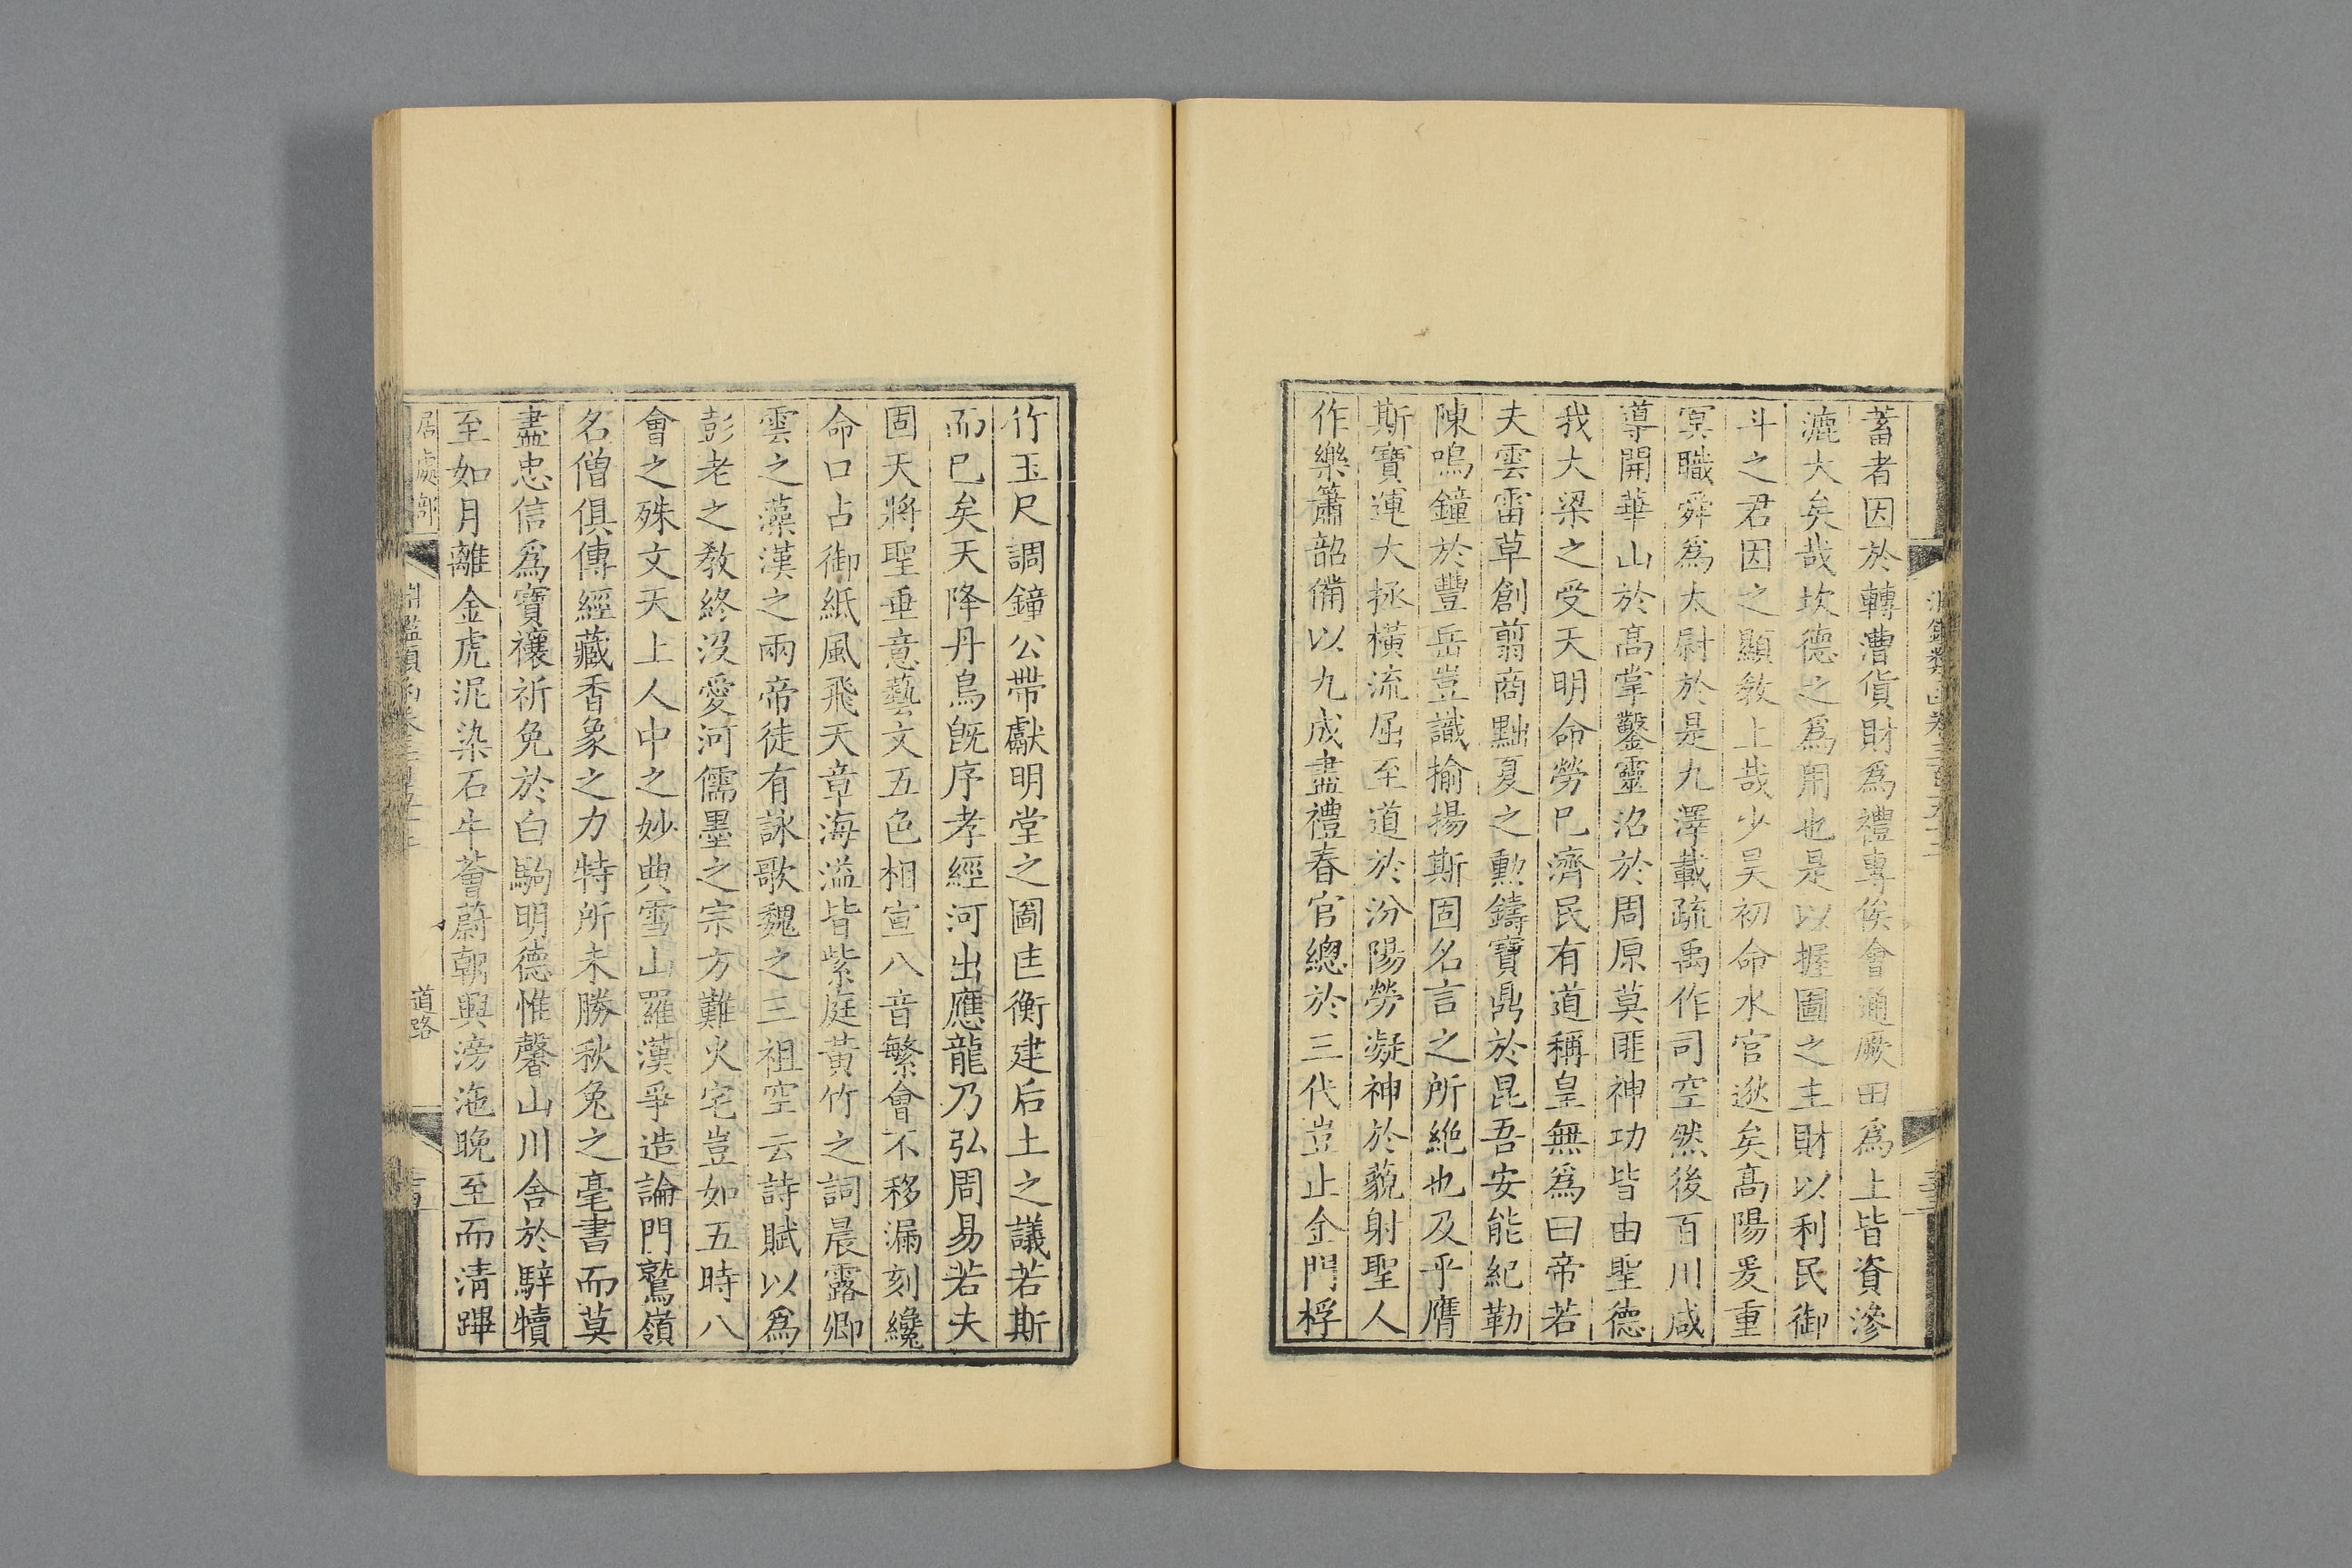 蓄者因於轉漕貨財為禮專俟會通厥田為上皆資滲
漉大矣哉坎德之為用也是以握圖之主財以利民御
斗之君因之顯教上哉少昊初命水官逖矣高陽爰重
冥職舜為太尉於是九澤載疏禹作司空然後百川咸
導開華山於高掌鑿靈沼於周原莫匪神功皆由聖德
我大梁之受天明命勞己濟民有道稱皇無為曰帝若
夫雲雷草創翦商黜夏之勲鑄寶鼎於昆吾安能紀勒
陳鳴鐘於豐岳豈識揄揚斯固名言之所絶也及乎膺
斯寶運大拯横流屈至道於汾陽勞凝神於藐射聖人
作樂簫韶備以九成盡禮春官總於三代豈止金門桴
竹玉尺調鐘公帶獻明堂之圖匡衡建后土之議若斯
而已矣天降丹烏既序孝經河出應龍乃弘周易若夫
固天將聖垂意藝文五色相宣八音繁會不移漏刻纔
命口占御紙風飛天章海溢皆紫庭黄竹之詞晨露卿
雲之藻漢之兩帝徒有詠歌魏之三祖空云詩賦以為
彭老之教終没愛河儒墨之宗方難火宅豈如五時八
會之殊文天上人中之妙典雪山羅漢爭造論門鷲嶺
名僧俱傳經藏香象之力特所未勝秋兔之毫書而莫
盡忠信為寶禳祈免於白駒明德惟馨山川舍於騂犢
至如月離金虎泥染石牛薈蔚朝興滂沲晚至而清蹕
居處部
道路